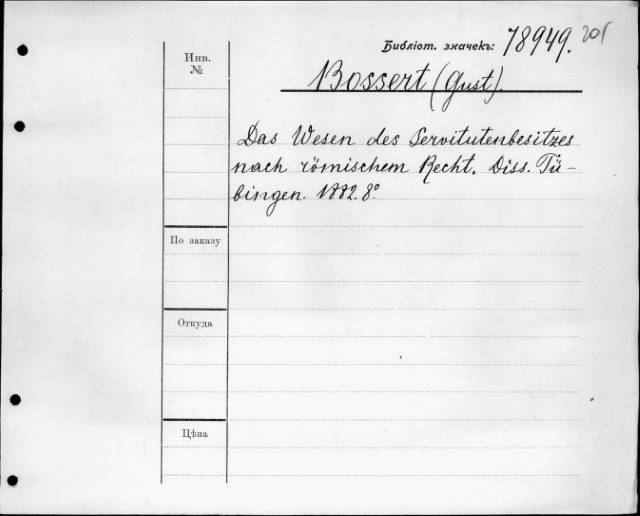 Библіот. значекъ: 78949. 201
Инв.
№
Bossert (Gust).
Das Wesen des Servitutenbesitzes
nach römischem Recht. Diss. Tü-
bingen. 1882. 8º.
По заказу
Откуда
Цѣна